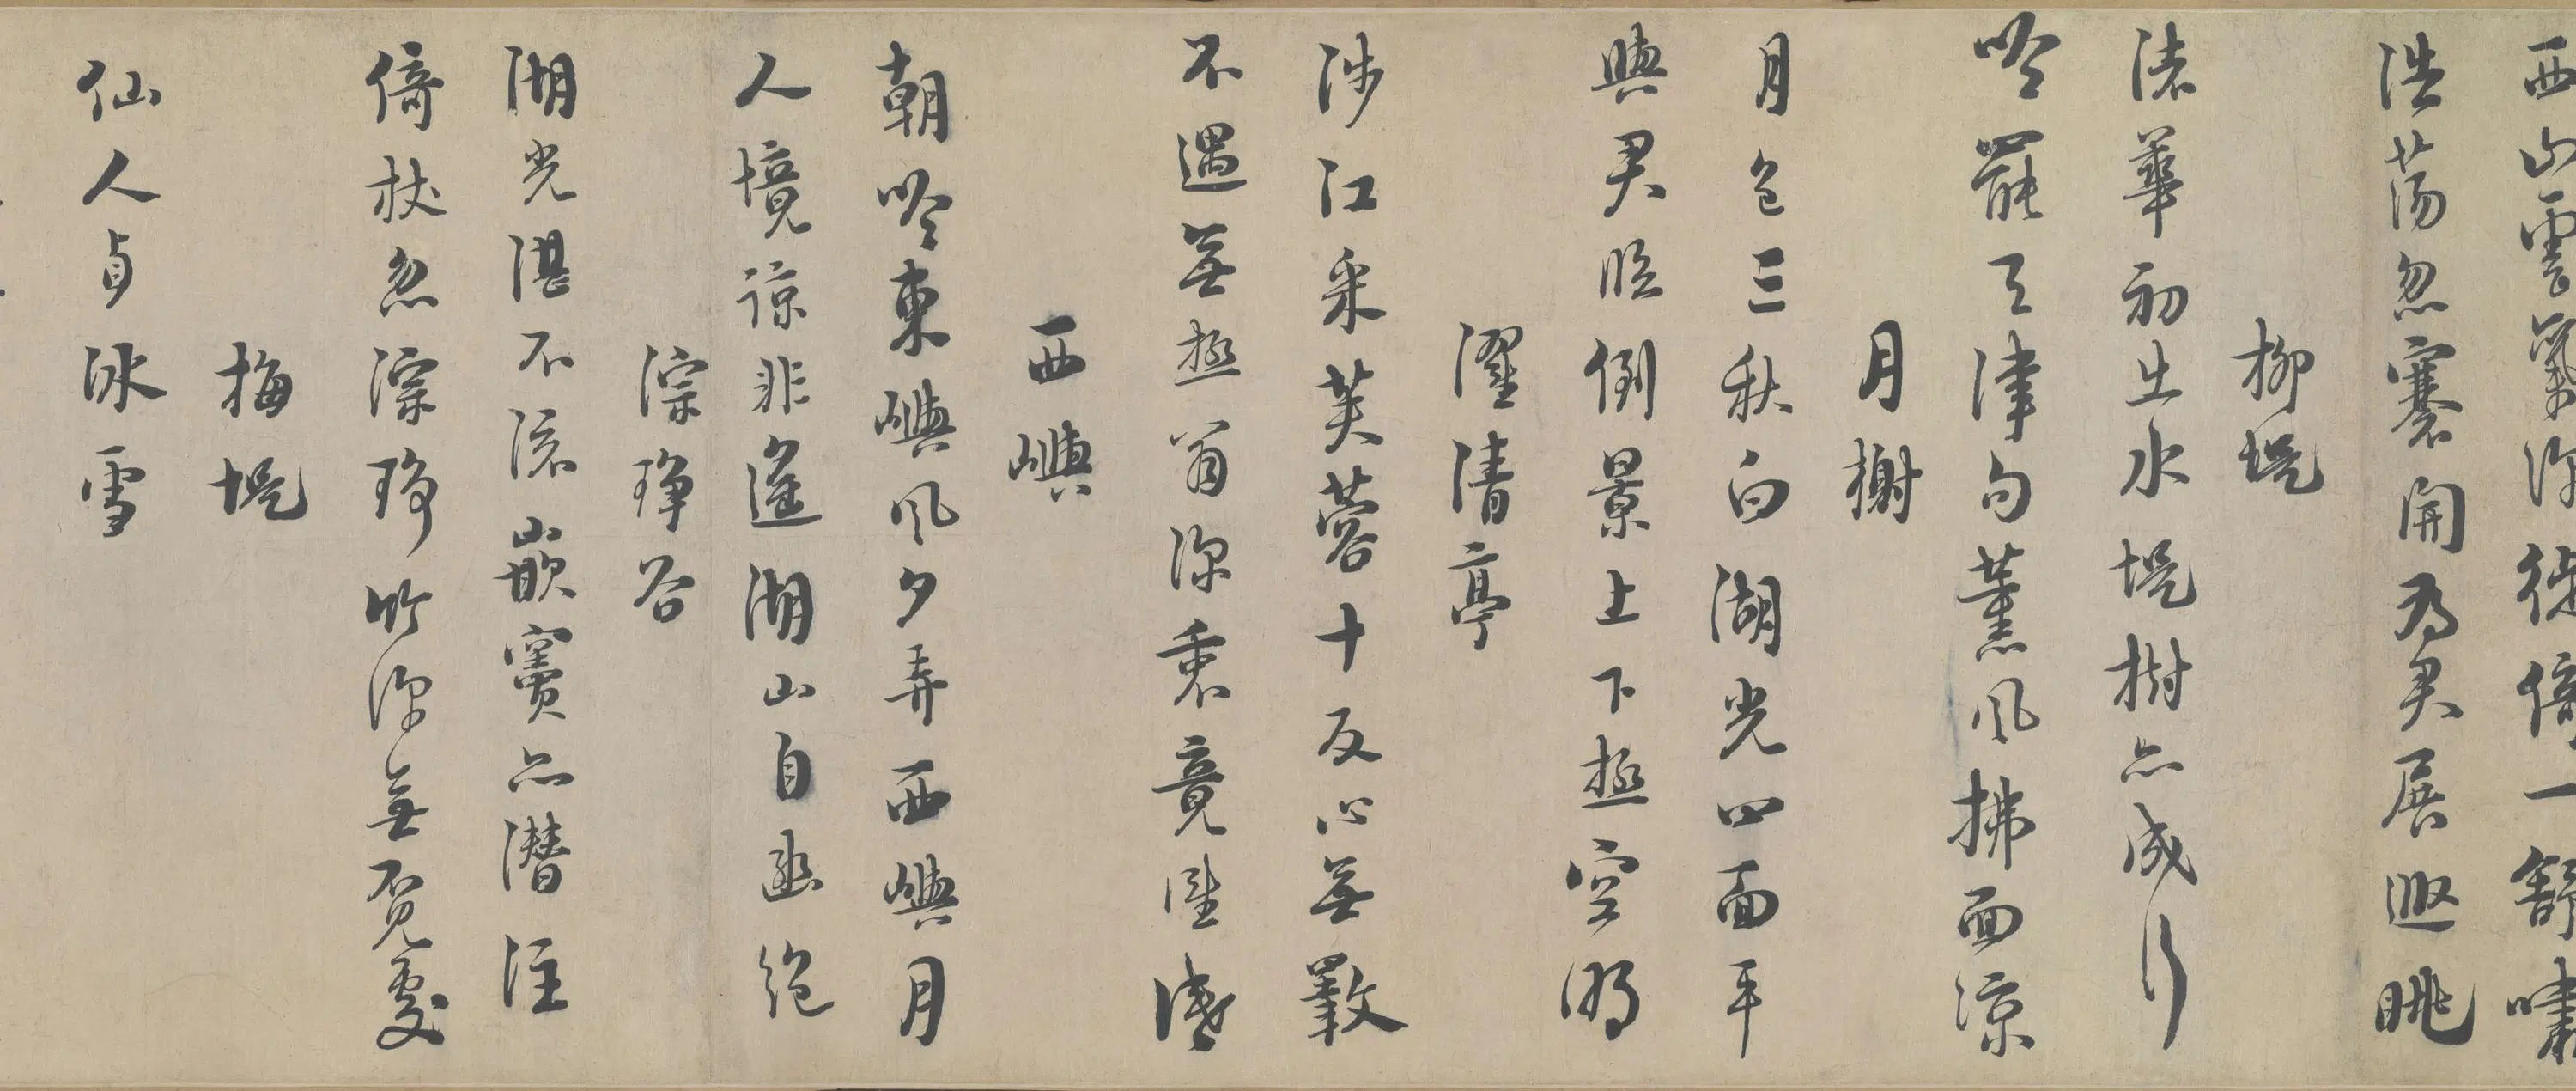 西山雲氣深徙倚一舒嘯
浩蕩忽褰開為君展遐眺
柳堤
渚華初出水堤樹亦成行
吟罷天津句薰風拂面涼
月榭
月色三秋白湖光四面平
與君臨倒景上下極空明
濯清亭
涉江采芙蓉十反心無斁
不遇無極翁深衷竟誰識
西嶼
朝吟東嶼風夕弄西嶼月
人境諒非遙湖山自幽絕
淙琤谷
湖光湛不流嵌竇亦潛注
倚杖忽淙琤竹深無覓處
梅堤
仙人貞冰雪